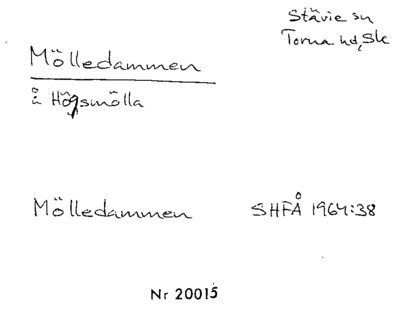 Stävie sn
Torna hd, Sk
Mölledammen
å Högsmölla
Mölledammen SHFÅ 1964:38
Nr 20015